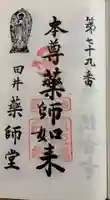 第七十九番
本尊薬師如来
田井薬師堂